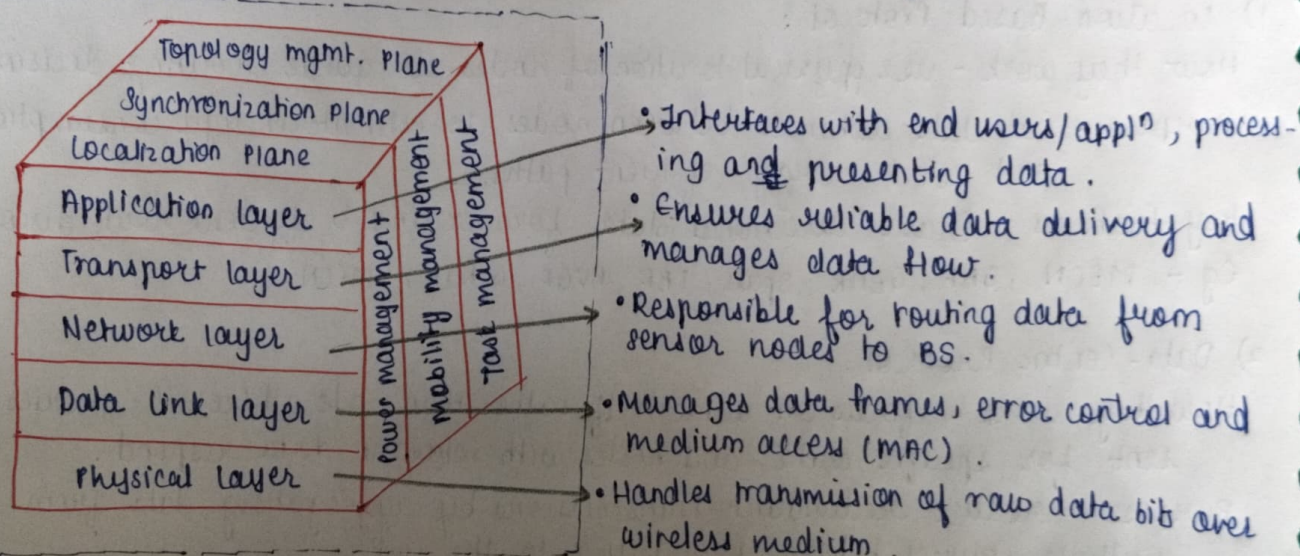 Topology mgmt. Plane
Synchronization Plane
Localization Plane
Application layer
Transport layer
Network layer
Data link layer
Physical layer
Power management
Mobility management
Task management
• Interfaces with end users/applⁿ, process-
ing and presenting data.
• Ensures reliable data delivery and
manages data flow.
• Responsible for routing data from
sensor nodes to BS.
• Manages data frames, error control and
medium access (MAC).
• Handles transmission of raw data bits over
wireless medium